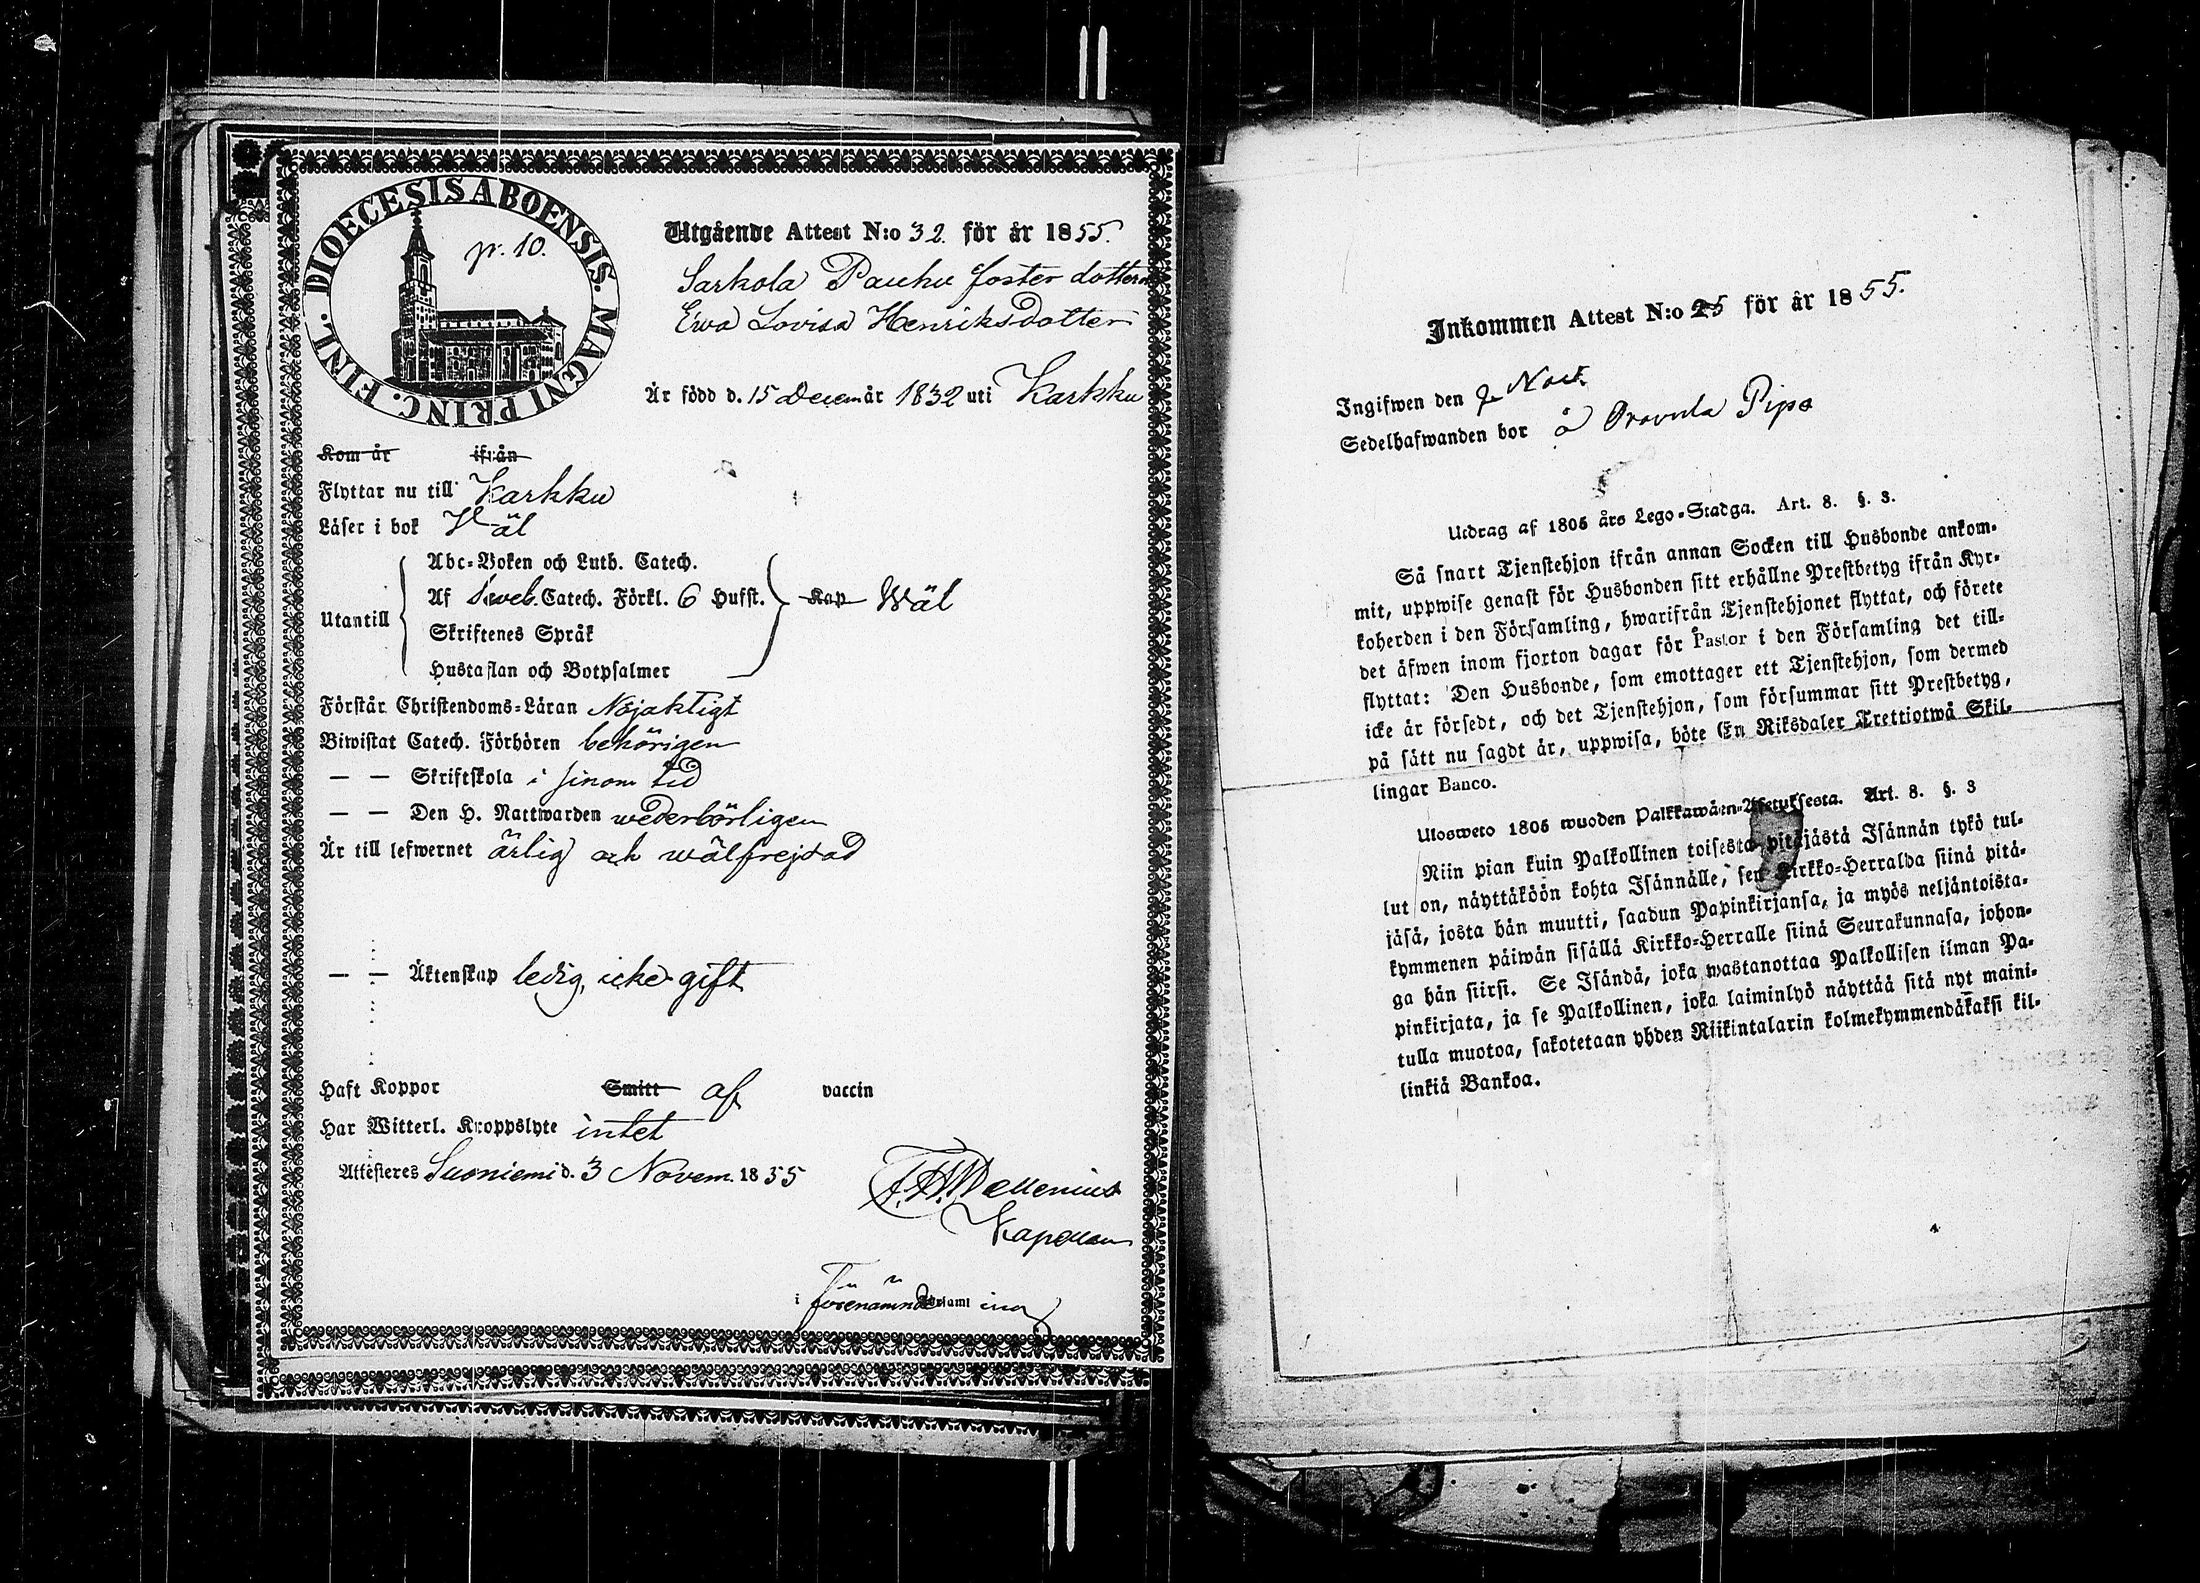 DIOECESIS ABOENSIS. MAGNI PRINC. FINL.
pr. 10.
Utgående Attest N:o 32. för år 1855.
Sarkola Pauhu foster dottern
Ewa Lovisa Henriksdotter
Är född d. 15 Decem år 1832 uti Karkku
Kom år ifrån
Flyttar nu till Karkku
Läser i bok Wäl
Abc-Boken och Luth. Catech.
Af Sveb. Catech. Förkl. 6 Hufst. Kap Wäl
Utantill
Skriftenes Språk
Hustaflan och Botpsalmer
Förstår Christendoms-Läran Nöjaktigt
Biwistat Catech. Förhören behörigen
— — Skriftskola i sinom tid
— — Den H. Nattwarden wederbörligen
Är till lefwernet ärlig och wälfrejdad
— — Äktenskap ledig, icke gift
Haft Koppor Smitt af vaccin
Har Witterl. Kroppslyte intet
Attesteres Suoniemi d. 3 Novem. 1855
F. H. Mellenius
Kapellan
i Förenämnde Församling
Inkommen Attest N:o 25 för år 1855.
Ingifwen den Nov.
Sedelhafwanden bor å Oravula Pipo
Utdrag af 1805 års Lego-Stadga. Art. 8. §. 3.
Så snart Tjenstehjon ifrån annan Socken till Husbonde ankom-
mit, uppwise genast för Husbonden sitt erhållne Prestbetyg ifrån Kyr-
koherden i den Församling, hwarifrån Tjenstehjonet flyttat, och förete
det äfwen inom fjorton dagar för Pastor i den Församling det till-
flyttat: Den Husbonde, som emottager ett Tjenstehjon, som dermed
icke är försedt, och det Tjenstehjon, som försummar sitt Prestbetyg,
på sätt nu sagdt är, uppwisa, böte En Riksdaler Trettiotwå Skil-
lingar Banco.
Ulosweto 1805 wuoden Palkkawäen-Asetuksesta. Art. 8. §. 3
Niin pian kuin Palkollinen toisesta pitäjästä Isännän tykö tul-
lut on, näyttäköön kohta Isännälle, sen Kirkko-Herralda siinä pitä-
jäsä, josta hän muutti, saadun Papinkirjansa, ja myös neljäntoista-
kymmenen päiwän sisällä Kirkko-Herralle siinä Seurakunnasa, johon-
ga hän siirsi. Se Isändä, joka wastanottaa Palkollisen ilman Pa-
pinkirjata, ja se Palkollinen, joka laiminlyö näyttää sitä nyt maini-
tulla muotoa, sakotetaan yhden Riikintalarin kolmekymmendäkaksi kil-
linkiä Bankoa.